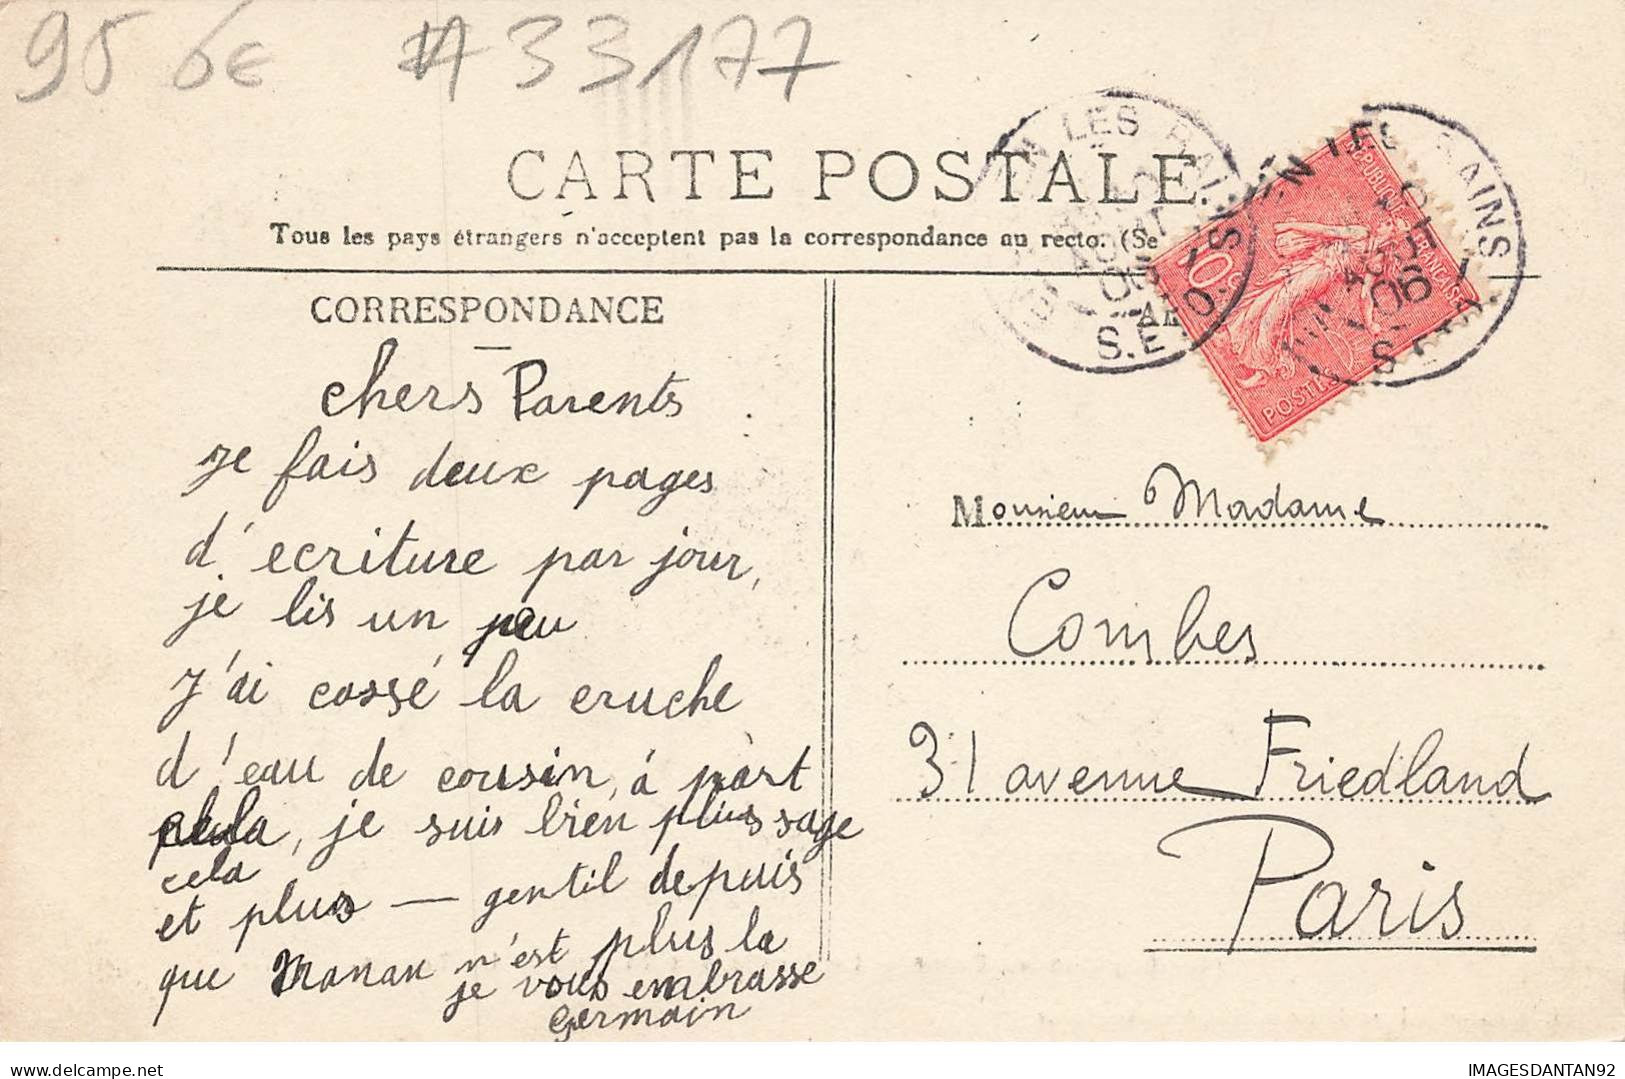 95 6€ #33177
CARTE POSTALE
Tous les pays étrangers n'acceptent pas la correspondance au recto. (Se
LES BAINS
AOUT
06
S.ET O.
LES BAINS
AOUT
06
S.ET O.
REPUBLIQUE FRANÇAISE
10c
POSTES
CORRESPONDANCE
chers Parents
Je fais deux pages
d'ecriture par jour,
je lis un peu
J'ai cassé la cruche
d'eau de cousin, à part
cela, je suis bien plus sage
cela
et plus — gentil depuis
que Manan n'est plus la
je vous embrasse
Germain
Monsieur Madame
Combes
31 avenue Friedland
Paris
IMAGESDANTAN92